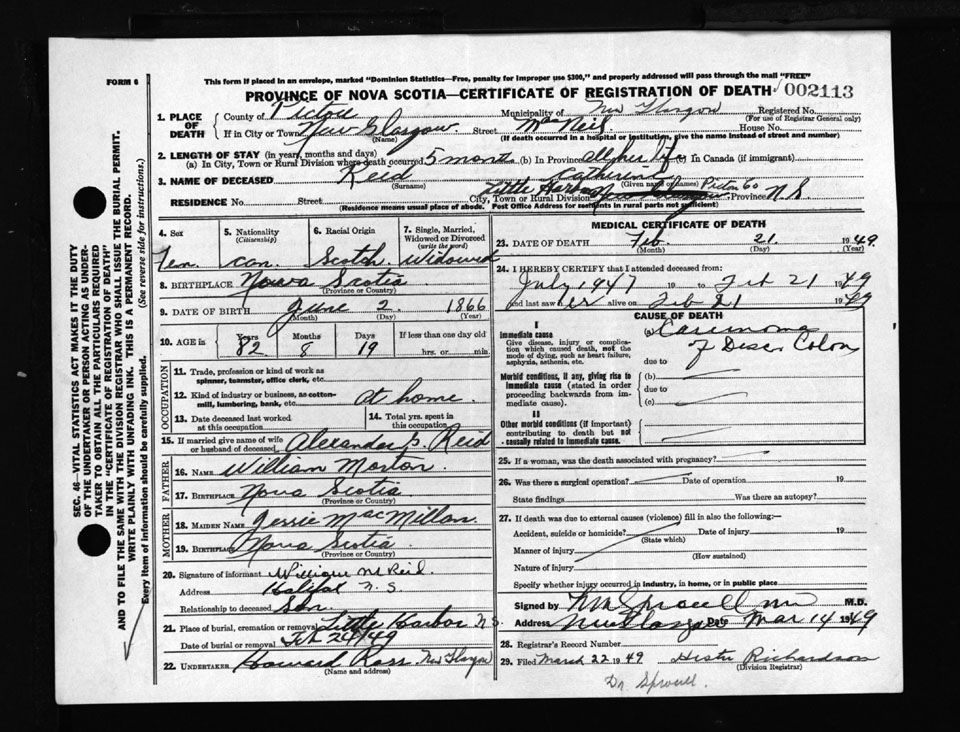 FORM 6
This form if placed in an envelope, marked "Dominion Statistics—Free, penalty for improper use $300," and properly addressed will pass through the mail "FREE"
PROVINCE OF NOVA SCOTIA—CERTIFICATE OF REGISTRATION OF DEATH 002113
1. PLACE OF DEATH
County of Pictou Municipality of New Glasgow Registered No.
(For use of Registrar General only)
If in City or Town New Glasgow Street MacNeil House No.
(Name) (If death occurred in a hospital or institution, give the name instead of street and number)
2. LENGTH OF STAY (in years, months and days)
(a) In City, Town or Rural Division where death occurred 5 months (b) In Province all her life (c) In Canada (if immigrant)
3. NAME OF DECEASED Reid Catherine
(Surname) (Given name or names)
RESIDENCE No. Street City, Town or Rural Division Little Harbor Pictou Co Province N.S.
(Residence means usual place of abode. Post Office Address for residents in rural parts not sufficient)
4. Sex Fem.
5. Nationality (Citizenship) Can.
6. Racial Origin Scotch
7. Single, Married, Widowed or Divorced (write the word) Widowed
8. BIRTHPLACE Nova Scotia
(Province or Country)
9. DATE OF BIRTH June 2. 1866
(Month) (Day) (Year)
10. AGE in Years 82 Months 8 Days 19 If less than one day old hrs. or min.
OCCUPATION
11. Trade, profession or kind of work as spinner, teamster, office clerk, etc.
12. Kind of industry or business, as cotton-mill, lumbering, bank, etc. at home.
13. Date deceased last worked at this occupation
14. Total yrs. spent in this occupation
15. If married give name of wife or husband of deceased Alexander S. Reid
FATHER
16. NAME William Morton.
17. BIRTHPLACE Nova Scotia
(Province or Country)
MOTHER
18. MAIDEN NAME Jessie MacMillan.
19. BIRTHPLACE Nova Scotia
(Province or Country)
20. Signature of informant William M Reid.
Address Halifax N.S.
Relationship to deceased Son.
21. Place of burial, cremation or removal Little Harbor N.S.
Date of burial or removal Feb 24/49
22. UNDERTAKER Howard Ross New Glasgow
(Name and address)
MEDICAL CERTIFICATE OF DEATH
23. DATE OF DEATH Feb. 21. 1949
(Month) (Day) (Year)
24. I HEREBY CERTIFY that I attended deceased from:
July 1947 19 to Feb 21 1949
and last saw her alive on Feb 21 1949
CAUSE OF DEATH
I
Immediate cause
Give disease, injury or complication which caused death, not the mode of dying, such as heart failure, asphyxia, asthenia, etc.
(a) Carcinoma of Desc. Colon
due to
Morbid conditions, if any, giving rise to immediate cause (stated in order proceeding backwards from immediate cause).
(b)
due to
(c)
II
Other morbid conditions (if important) contributing to death but not causally related to immediate cause.
25. If a woman, was the death associated with pregnancy?
26. Was there a surgical operation? Date of operation 19
State findings Was there an autopsy?
27. If death was due to external causes (violence) fill in also the following:—
Accident, suicide or homicide? Date of injury 19
(State which)
Manner of injury
(How sustained)
Nature of injury
Specify whether injury occurred in industry, in home, or in public place
Signed by Sproull M.D.
Address New Glasgow Date Mar 14 1949
28. Registrar's Record Number
29. Filed March 22 1949 Richardson
(Division Registrar)
Dr. Sproull.
SEC. 46—VITAL STATISTICS ACT MAKES IT THE DUTY
OF THE UNDERTAKER OR PERSON ACTING AS UNDER-
TAKER TO OBTAIN ALL THE PARTICULARS REQUIRED
IN THE "CERTIFICATE OF REGISTRATION OF DEATH"
AND TO FILE THE SAME WITH THE DIVISION REGISTRAR WHO SHALL ISSUE THE BURIAL PERMIT.
WRITE PLAINLY WITH UNFADING INK. THIS IS A PERMANENT RECORD.
Every item of information should be carefully supplied. (See reverse side for instructions.)